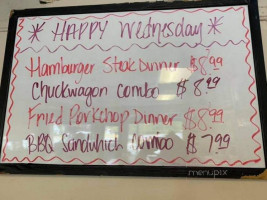 * HAPPY Wednesday *
Hamburger Steak Dinner $8.99
Chuckwagon combo $8.99
Fried Porkchop Dinner $8.99
BBQ Sandwhich combo $7.99
menupix